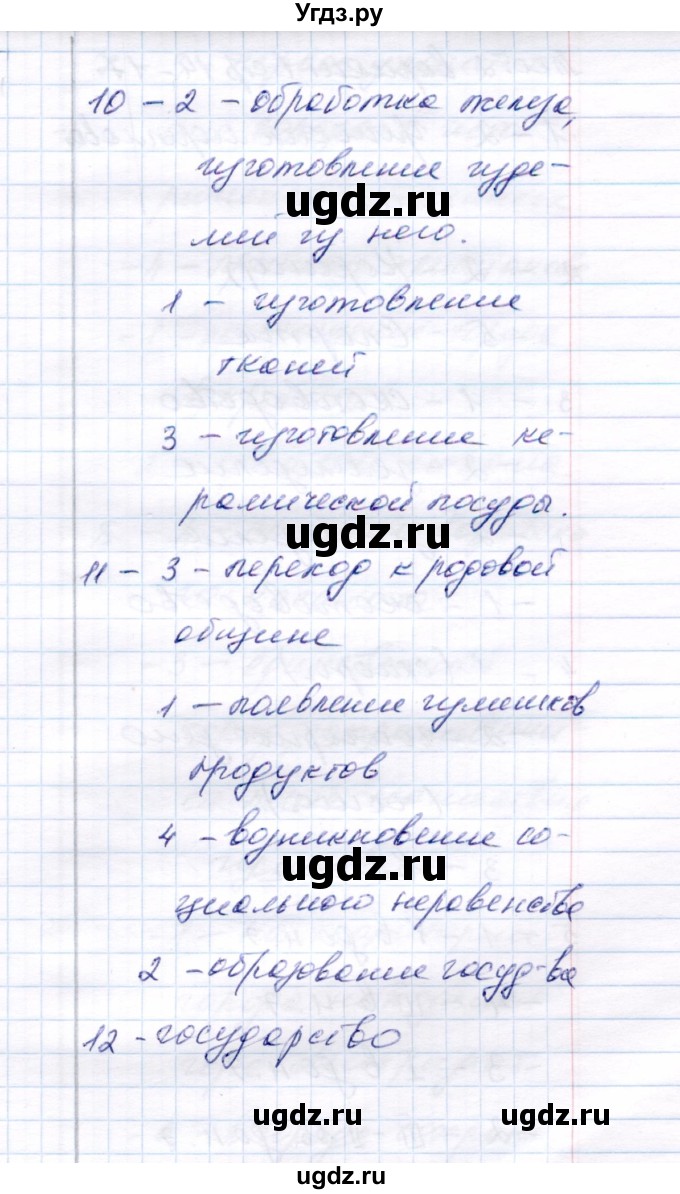 Угдз.ру
10 – 2 – обработка железа,
изготовление изде-
ugdz.ru
лий из него.
1 – изготовление
тканей
3 – изготовление ке-
рамической посуды.
ugdz.ru
11 – 3 – переход к родовой
общине
1 – появление излишков
продуктов
4 – возникновение со-
ugdz.ru
циального неравенства
2 – образование госуд-ва
12 – государство
ugdz.ru ugdz.ru
ugdz.ru